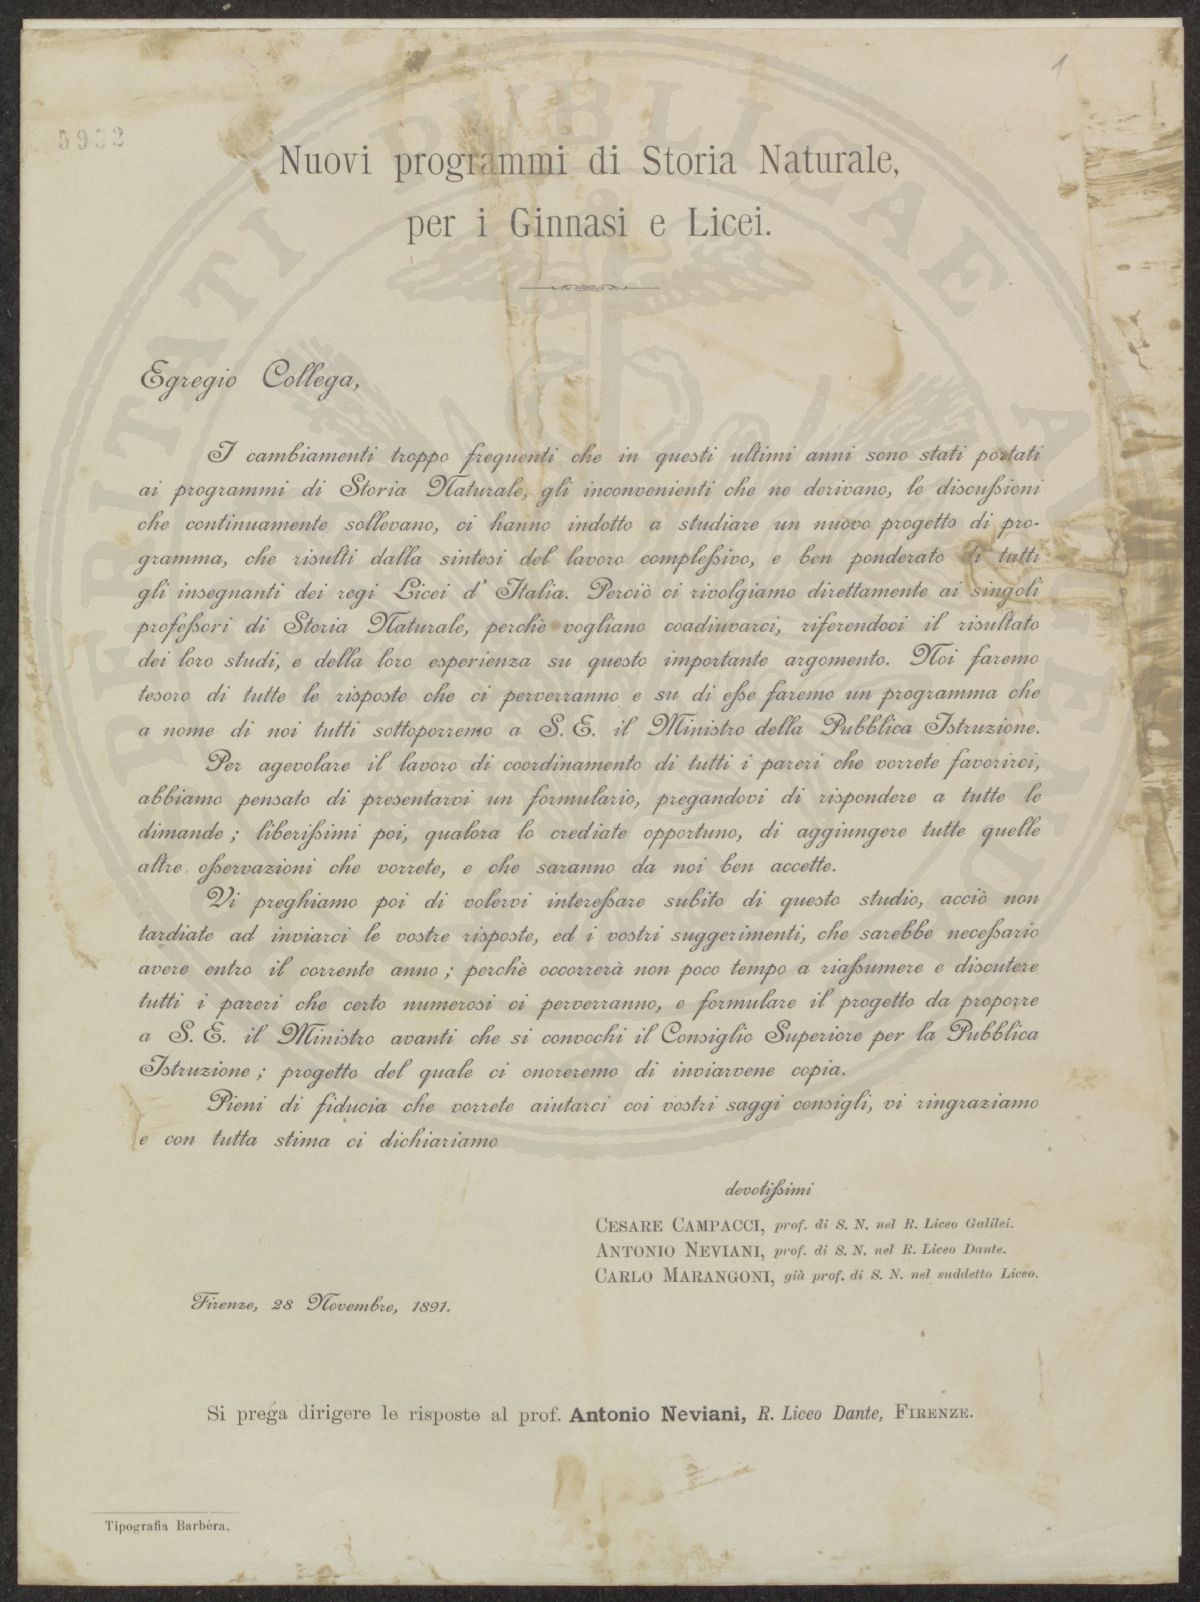 1
5952
Nuovi programmi di Storia Naturale,
per i Ginnasi e Licei.
Egregio Collega,
I cambiamenti troppo frequenti che in questi ultimi anni sono stati portati
ai programmi di Storia Naturale, gli inconvenienti che ne derivano, le discussioni
che continuamente sollevano, ci hanno indotto a studiare un nuovo progetto di pro-
gramma, che risulti dalla sintesi del lavoro complessivo, e ben ponderato di tutti
gli insegnanti dei regi Licei d' Italia. Perciò ci rivolgiamo direttamente ai singoli
professori di Storia Naturale, perchè vogliano coadiuvarci, riferendoci il risultato
dei loro studi, e della loro esperienza su questo importante argomento. Noi faremo
tesoro di tutte le risposte che ci perverranno e su di esse faremo un programma che
a nome di noi tutti sottoporremo a S. E. il Ministro della Pubblica Istruzione.
Per agevolare il lavoro di coordinamento di tutti i pareri che vorrete favorirci,
abbiamo pensato di presentarvi un formulario, pregandovi di rispondere a tutte le
dimande ; liberissimi poi, qualora lo crediate opportuno, di aggiungere tutte quelle
altre osservazioni che vorrete, e che saranno da noi ben accette.
Vi preghiamo poi di volervi interessare subito di questo studio, acciò non
tardiate ad inviarci le vostre risposte, ed i vostri suggerimenti, che sarebbe necessario
avere entro il corrente anno ; perchè occorrerà non poco tempo a riassumere e discutere
tutti i pareri che certo numerosi ci perverranno, e formulare il progetto da proporre
a S. E. il Ministro avanti che si convochi il Consiglio Superiore per la Pubblica
Istruzione ; progetto del quale ci onoreremo di inviarvene copia.
Pieni di fiducia che vorrete aiutarci coi vostri saggi consigli, vi ringraziamo
e con tutta stima ci dichiariamo
devotissimi
CESARE CAMPACCI, prof. di S. N. nel R. Liceo Galilei.
ANTONIO NEVIANI, prof. di S. N. nel R. Liceo Dante.
CARLO MARANGONI, già prof. di S. N. nel suddetto Liceo.
Firenze, 28 Novembre, 1891.
Si prega dirigere le risposte al prof. Antonio Neviani, R. Liceo Dante, FIRENZE.
Tipografia Barbèra.